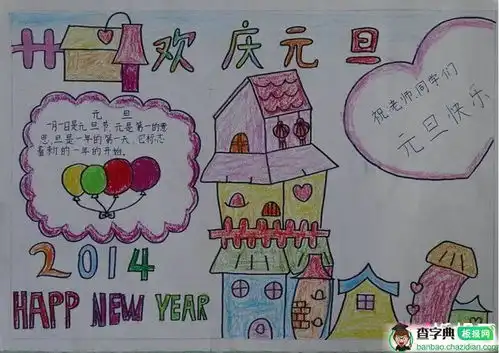 欢庆元旦
元 旦
一月一日是元旦节,元是第一的意
思,旦是一年的第一天,它标志
着新的一年的开始。
祝老师.同学们
元旦快乐
2014
HAPP NEW YEAR
查字典 板报网
banbao.chazidian.com